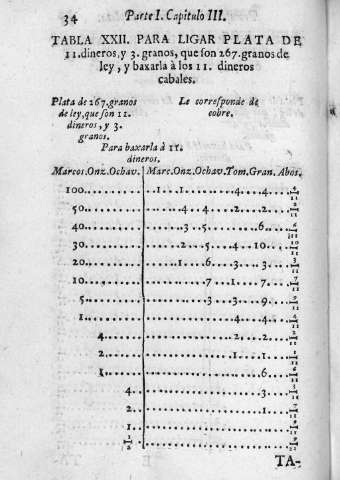 34 Parte I. Capitulo III.
TABLA XXII. PARA LIGAR PLATA DE
11. dineros, y 3. granos, que son 267. granos de
ley, y baxarla à los 11. dineros
cabales.
Plata de 267. granos
de ley, que son 11.
dineros, y 3.
granos.
Le corresponde de
cobre.
Para baxarla à 11.
dineros.
Marcos. Onz. Ochav. Marc. Onz. Ochav. Tom. Gran. Abos.
100. 1. 1. 4. 4. 4/11
50. 4. 4. 2. 2. 2/11
40. 3. 5. 6. 6/11
30. 2. 5. 4. 10. 10/11
20. 1. 6. 3. 3. 3/11
10. 7. 1. 7. 7/11
5. 3. 3. 9. 9/11
1. 4. 4. 4/11
4. 2. 2. 2/11
2. 1. 1. 1/11
1. 6. 6/11
4. 3. 3/11
2. 1.
1.
1/2
TA-